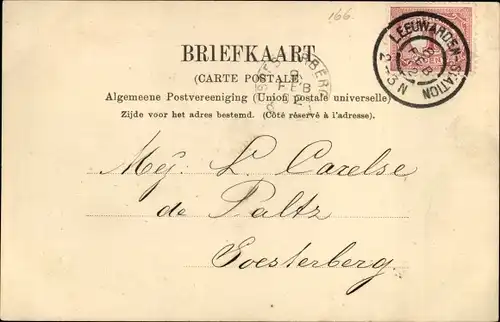 166.
LEEUWARDEN-STATION
FEB
2-3N
BRIEFKAART
(CARTE POSTALE)
SOESTERBERG
FEB
Algemeene Postvereeniging (Union postale universelle)
Zijde voor het adres bestemd. (Côté réservé à l'adresse).
Mej. L. Carelse
de Paltz
Soesterberg